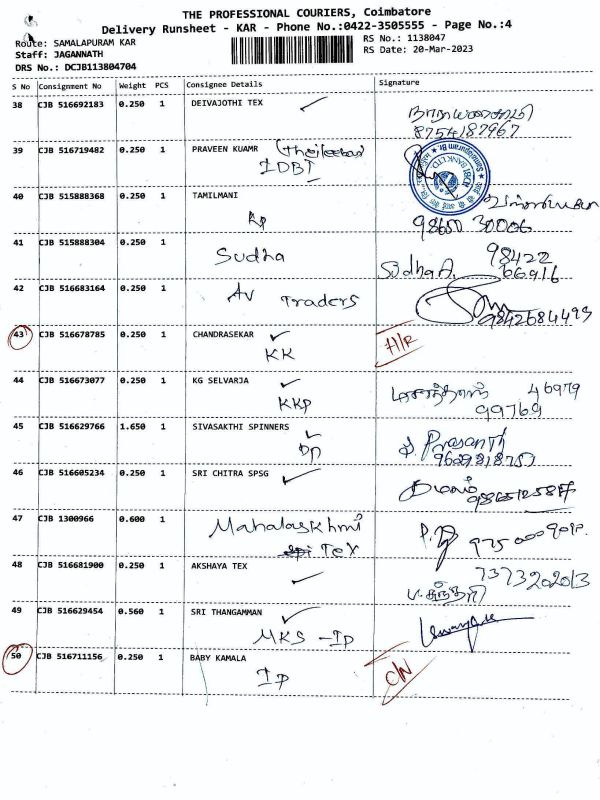 THE PROFESSIONAL COURIERS, Coimbatore
Delivery Runsheet - KAR - Phone No.:0422-3505555 - Page No.:4
Route: SAMALAPURAM KAR
RS No.: 1138047
Staff: JAGANNATH
RS Date: 20-Mar-2023
DRS No.: DCJB113804704
S No Consignment No Weight PCS Consignee Details Signature
38 CJB 516692183 0.250 1 DEIVAJOTHI TEX
நாராயணசாமி
8754187967
39 CJB 516719482 0.250 1 PRAVEEN KUAMR
IDBI
40 CJB 515888368 0.250 1 TAMILMANI
98650 30006
41 CJB 515888304 0.250 1
Sudha
Sudha A. 98422
66916
42 CJB 516683164 0.250 1
AV Traders
9842684493
43 CJB 516678785 0.250 1 CHANDRASEKAR
KK
H/R
44 CJB 516673077 0.250 1 KG SELVARJA
KKP
46979
99769
45 CJB 516629766 1.650 1 SIVASAKTHI SPINNERS
S. Prasanth
46 CJB 516605234 0.250 1 SRI CHITRA SPSG
கமலம்
47 CJB 1300966 0.600 1
Mahalaskhmi
Tex
48 CJB 516681900 0.250 1 AKSHAYA TEX
7373202013
49 CJB 516629454 0.560 1 SRI THANGAMMAN
MKS - Ip
50 CJB 516711156 0.250 1 BABY KAMALA
Ip
C/N